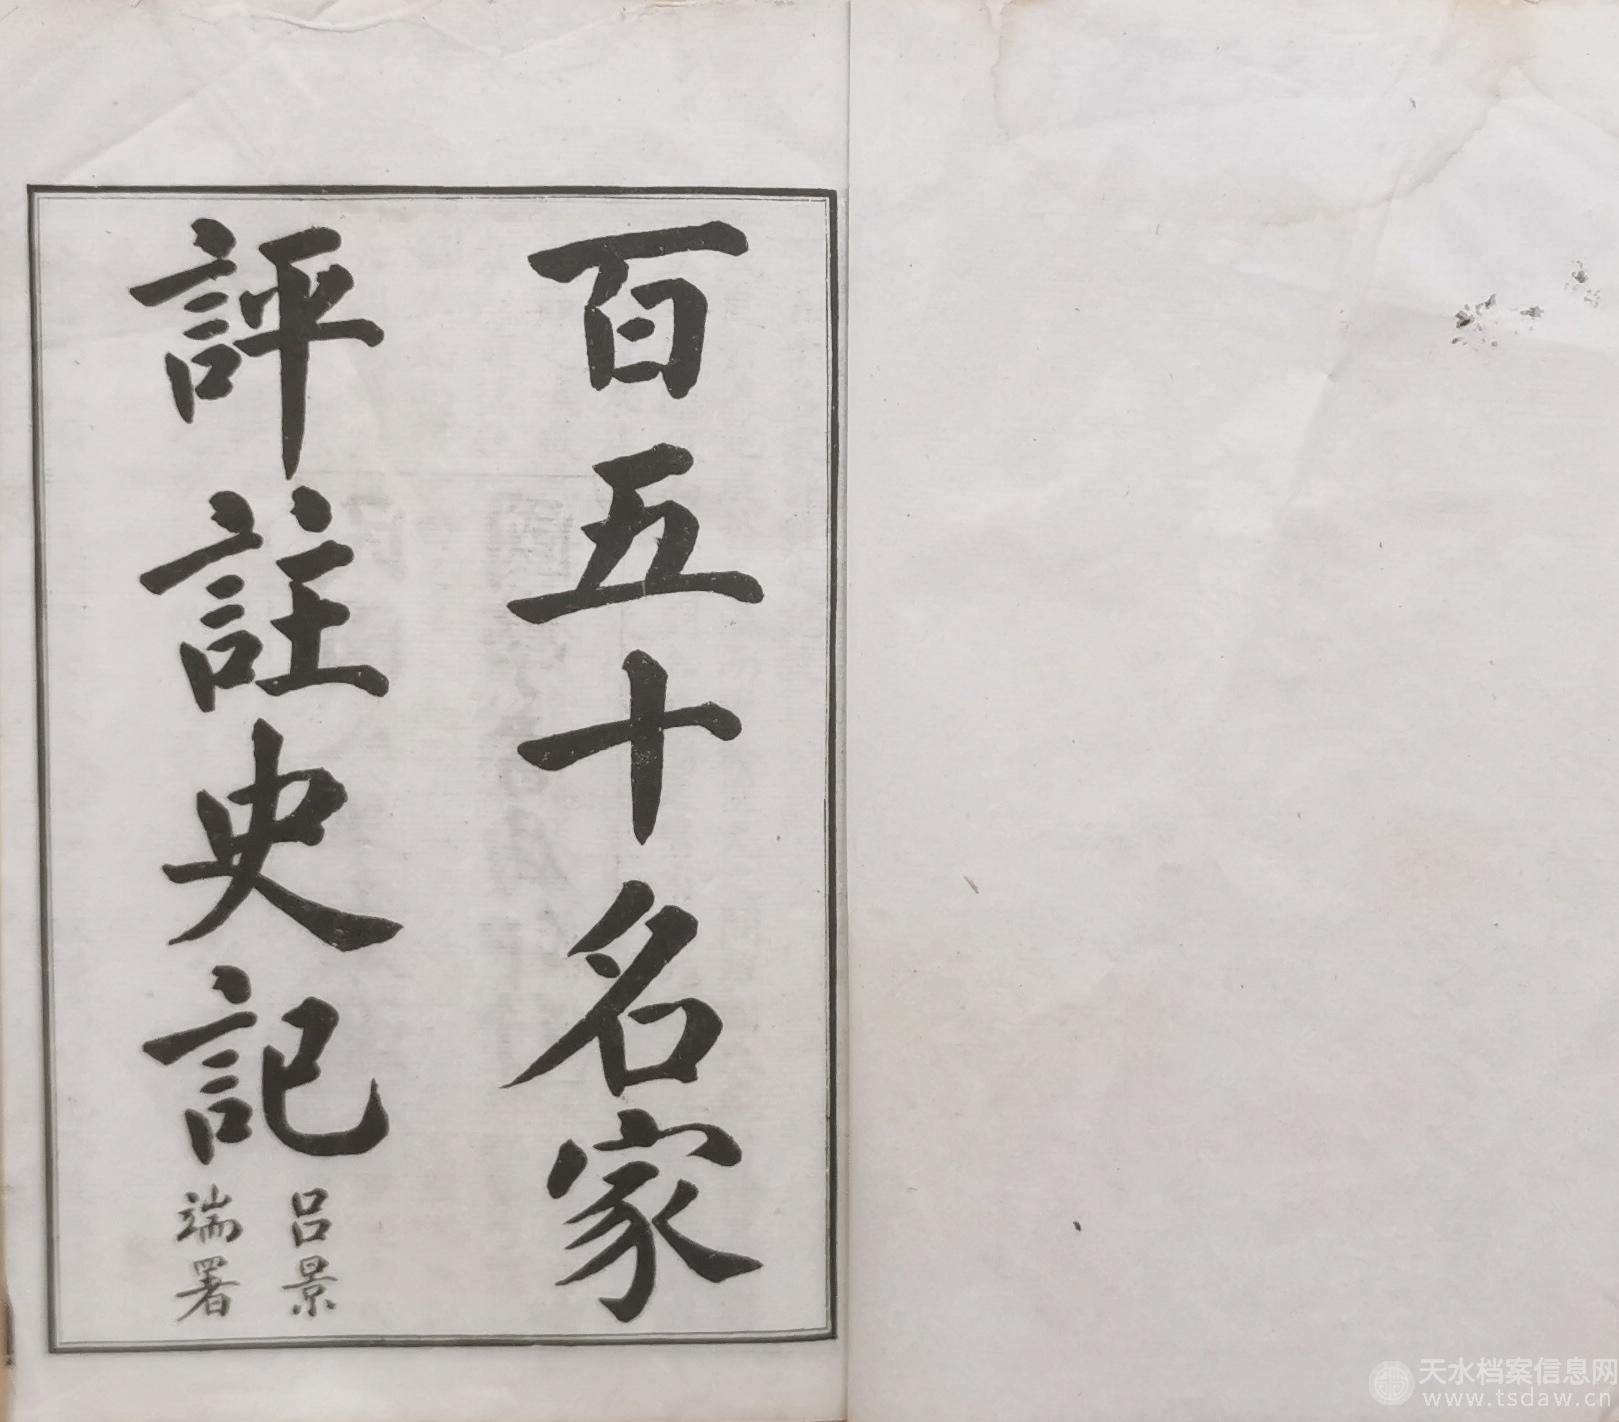 百五十名家
評註史記
呂景
端署
天水档案信息网
www.tsdaw.cn